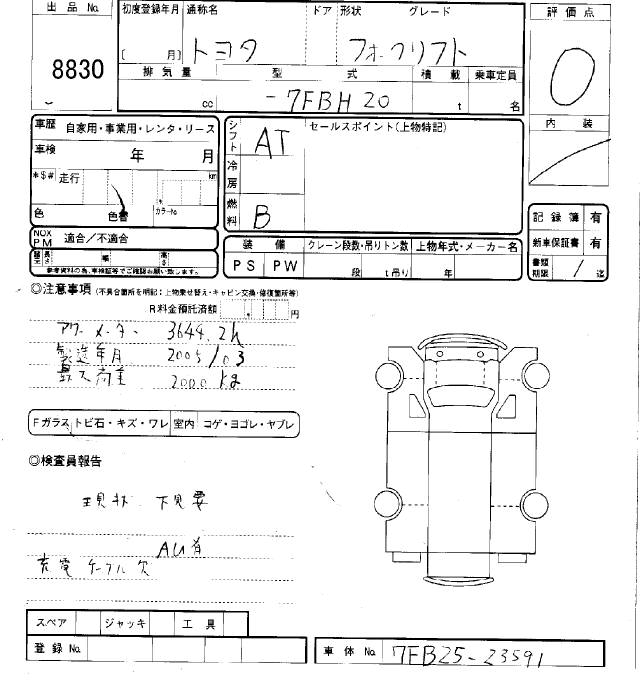 出品 No.
8830
初度登録年月 通称名 ドア 形状 グレード
[ 月] トヨタ フォークリフト
排気量 型式 積載 乗車定員
cc -7FBH20 t 名
評価点
0
内装
車歴 自家用・事業用・レンタ・リース
車検 年 月
*$# 走行 km
色 色替 カラーNo.
NOX PM 適合/不適合
長さ 幅 高さ
参考資料の為、車検証等でご確認お願い致します。
シフト AT
冷房
燃料 B
セールスポイント(上物特記)
装備 クレーン段数・吊りトン数 上物年式・メーカー名
PS PW 段 t吊り 年
記録簿 有
新車保証書 有
書類期限 / 迄
◎注意事項 (不具合箇所を明記:上物乗せ替え・キャビン交換・修復箇所等)
R料金預託済額 円
アワーメーター 3644.2h
製造年月 2005/03
最大荷重 2000kg
Fガラス トビ石・キズ・ワレ 室内 コゲ・ヨゴレ・ヤブレ
◎検査員報告
現状 下見要
AU有
充電ケーブル欠
スペア ジャッキ 工具
登録 No.
車体 No. 7FB25-23591